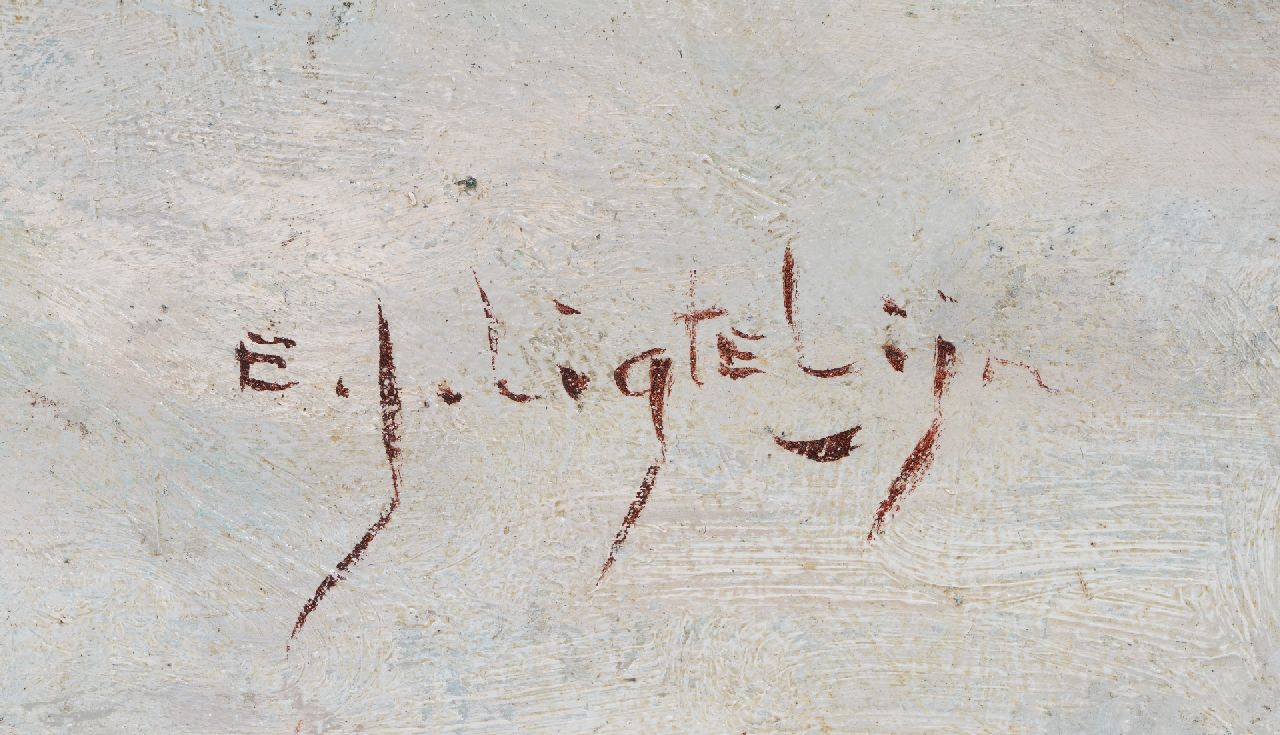 E.J. Ligtelijn